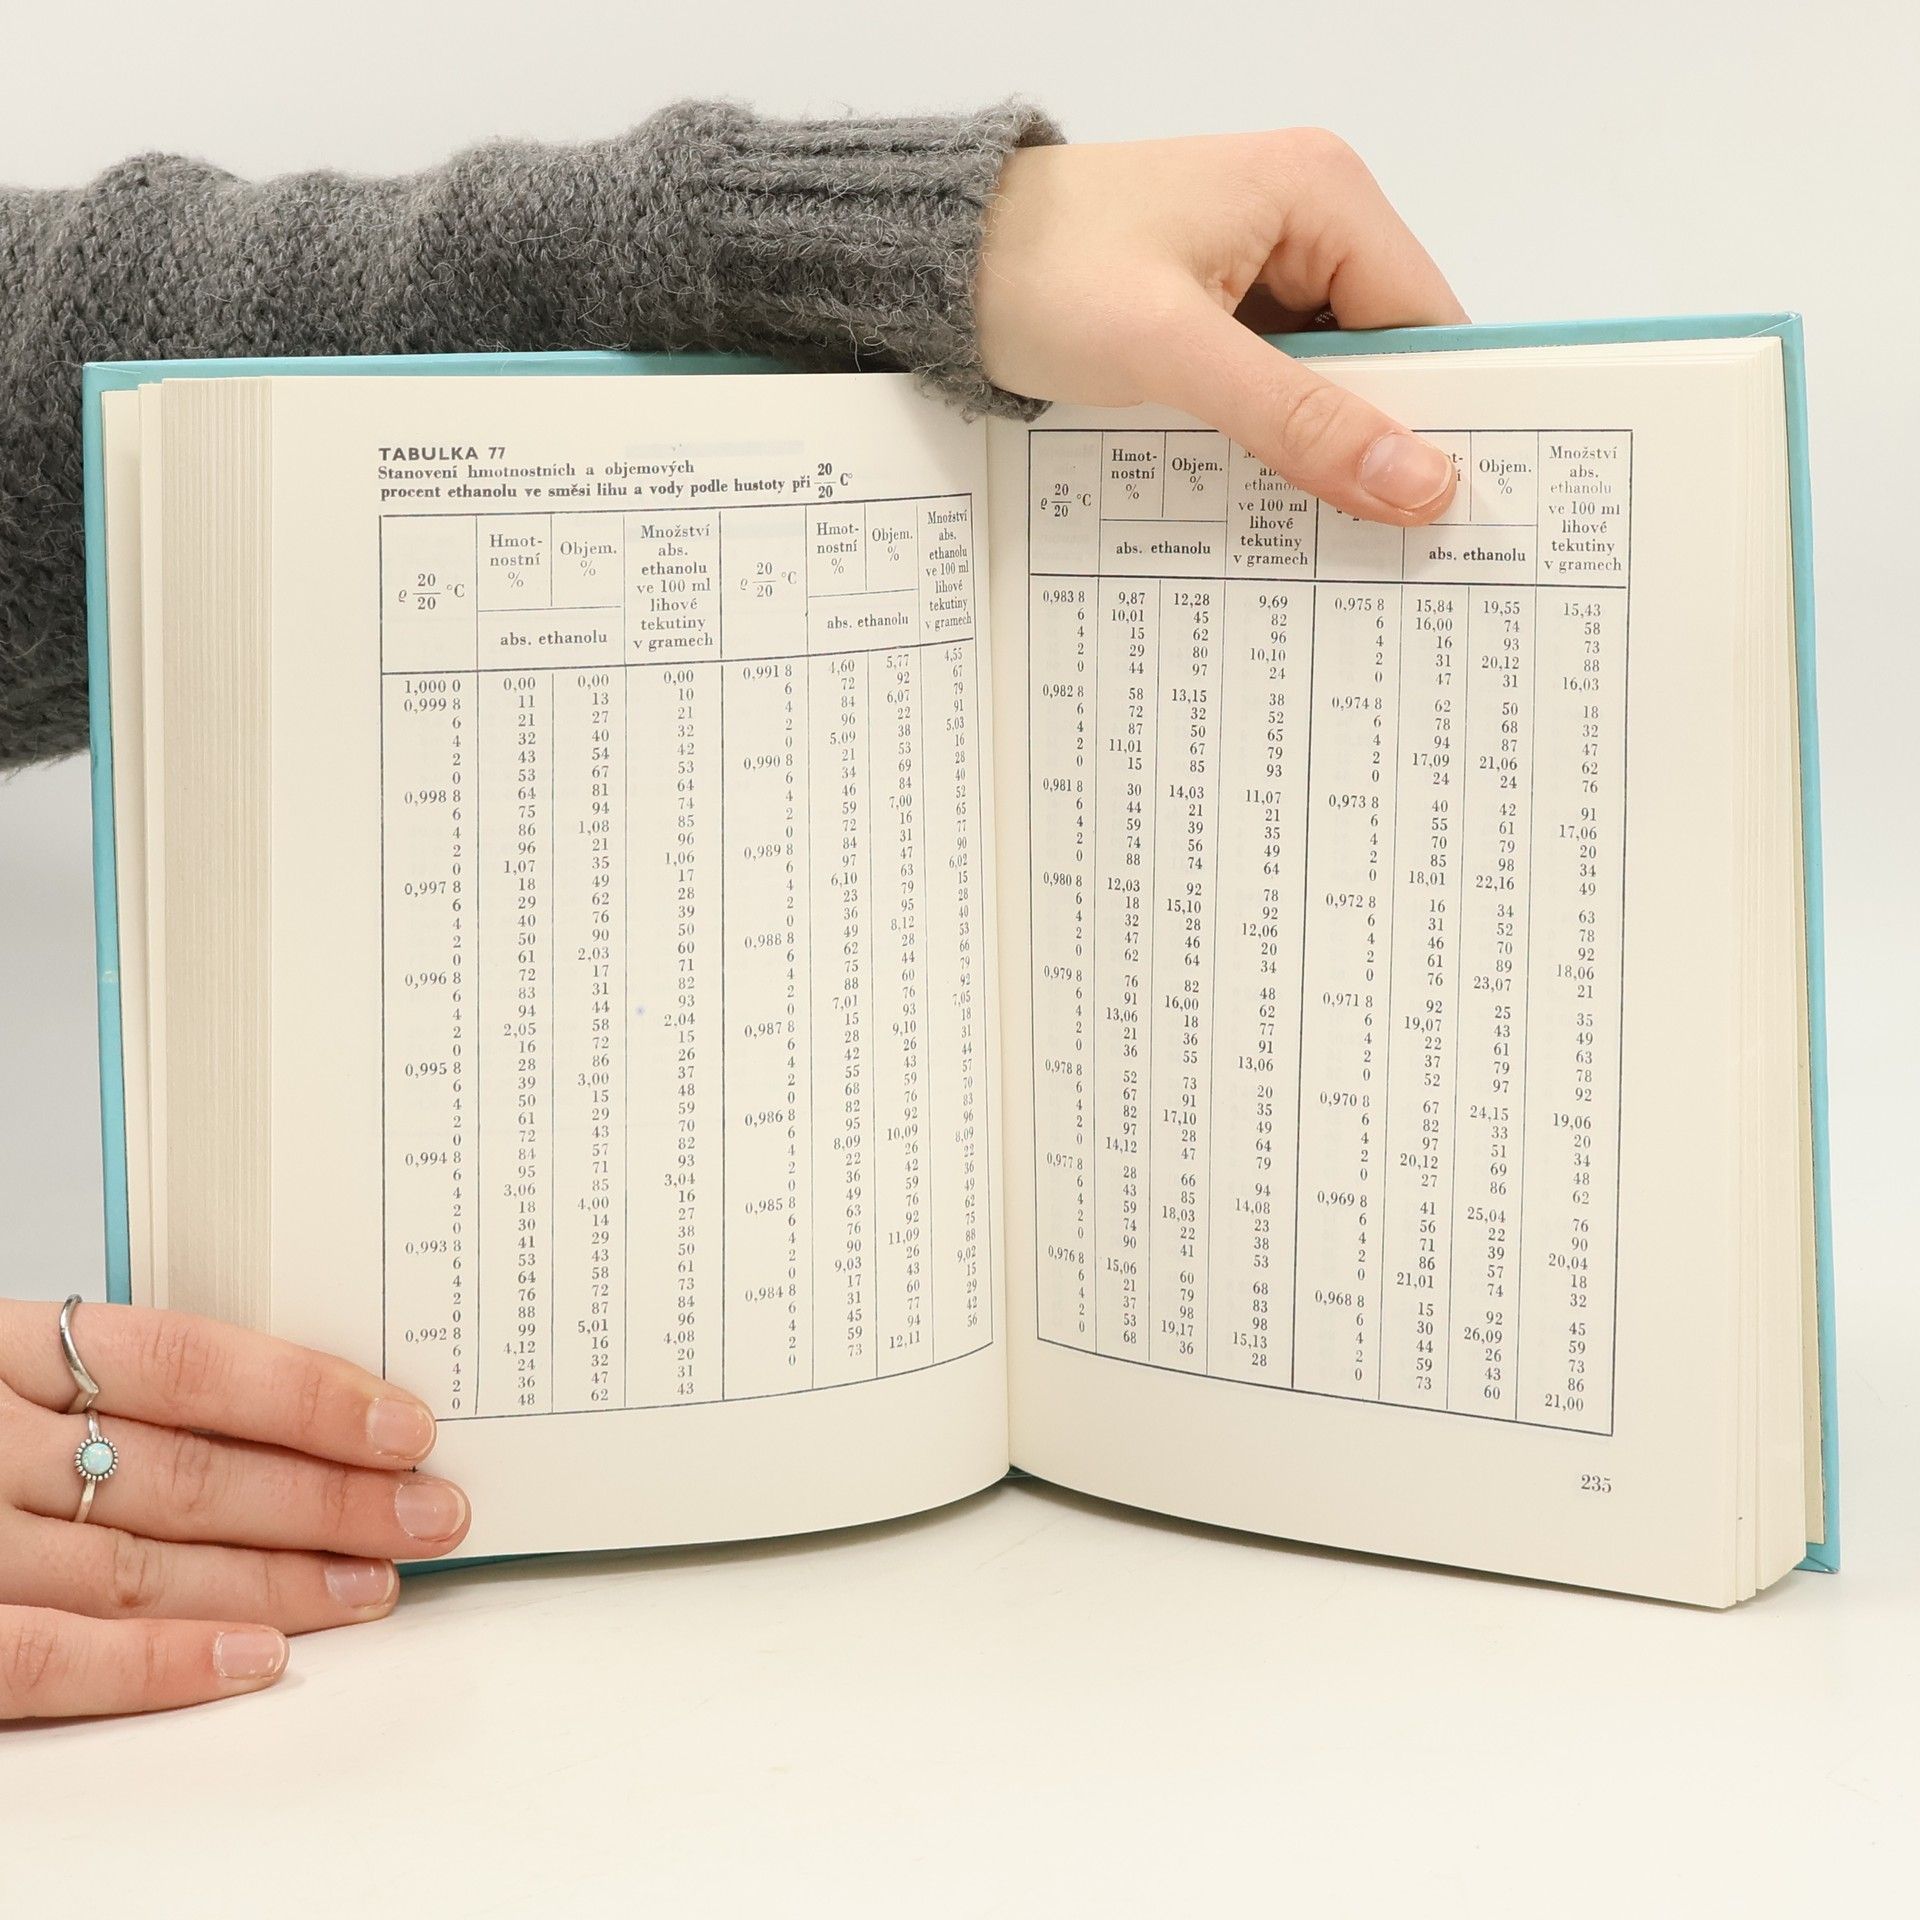 TABULKA 77
Stanovení hmotnostních a objemových
procent ethanolu ve směsi lihu a vody podle hustoty při 20/20 C°
ϱ 20/20 °C Hmot-nostní % Objem. % abs. ethanolu Množství abs. ethanolu ve 100 ml lihové tekutiny v gramech ϱ 20/20 °C Hmot-nostní % Objem. % abs. ethanolu Množství abs. ethanolu ve 100 ml lihové tekutiny v gramech
1,000 0 0,00 0,00 0,00 0,991 8 4,60 5,77 4,55
0,999 8 11 13 10 6 72 92 67
6 21 27 21 4 84 6,07 79
4 32 40 32 2 96 22 91
2 43 54 42 0 5,09 38 5,03
0 53 67 53 0,990 8 21 53 16
0,998 8 64 81 64 6 34 69 28
6 75 94 74 4 46 84 40
4 86 1,08 85 2 59 7,00 52
2 96 21 96 0 72 16 65
0 1,07 35 1,06 0,989 8 84 31 77
0,997 8 18 49 17 6 97 47 90
6 29 62 28 4 6,10 63 6,02
4 40 76 39 2 23 79 15
2 50 90 50 0 36 95 28
0 61 2,03 60 0,988 8 49 8,12 40
0,996 8 72 17 71 6 62 28 53
6 83 31 82 4 75 44 66
4 94 44 93 2 88 60 79
2 2,05 58 2,04 0 7,01 76 92
0 16 72 15 0,987 8 15 93 7,05
0,995 8 28 86 26 6 28 9,10 18
6 39 3,00 37 4 42 26 31
4 50 15 48 2 55 43 44
2 61 29 59 0 68 59 57
0 72 43 70 0,986 8 82 76 70
0,994 8 84 57 82 6 95 92 83
6 95 71 93 4 8,09 10,09 96
4 3,06 85 3,04 2 22 26 8,09
2 18 4,00 16 0 36 42 22
0 30 14 27 0,985 8 49 59 36
0,993 8 41 29 38 6 63 76 49
6 53 43 50 4 76 92 62
4 64 58 61 2 90 11,09 75
2 76 72 73 0 9,03 26 88
0 88 87 84 0,984 8 17 43 9,02
0,992 8 99 5,01 96 6 31 60 15
6 4,12 16 4,08 4 45 77 29
4 24 32 20 2 59 94 42
2 36 47 31 0 73 12,11 56
0 48 62 43
ϱ 20/20 °C Hmot-nostní % Objem. % abs. ethanolu ve 100 ml lihové tekutiny v gramech Objem. % abs. ethanolu Množství abs. ethanolu ve 100 ml lihové tekutiny v gramech
0,983 8 9,87 12,28 9,69 0,975 8 15,84 19,55 15,43
6 10,01 45 82 6 16,00 74 58
4 15 62 96 4 16 93 73
2 29 80 10,10 2 31 20,12 88
0 44 97 24 0 47 31 16,03
0,982 8 58 13,15 38 0,974 8 62 50 18
6 72 32 52 6 78 68 32
4 87 50 65 4 94 87 47
2 11,01 67 79 2 17,09 21,06 62
0 15 85 93 0 24 24 76
0,981 8 30 14,03 11,07 0,973 8 40 42 91
6 44 21 21 6 55 61 17,06
4 59 39 35 4 70 79 20
2 74 56 49 2 85 98 34
0 88 74 64 0 18,01 22,16 49
0,980 8 12,03 92 78 0,972 8 16 34 63
6 18 15,10 92 6 31 52 78
4 32 28 12,06 4 46 70 92
2 47 46 20 2 61 89 18,06
0 62 64 34 0 76 23,07 21
0,979 8 76 82 48 0,971 8 92 25 35
6 91 16,00 62 6 19,07 43 49
4 13,06 18 77 4 22 61 63
2 21 36 91 2 37 79 78
0 36 55 13,06 0 52 97 92
0,978 8 52 73 20 0,970 8 67 24,15 19,06
6 67 91 35 6 82 33 20
4 82 17,10 49 4 97 51 34
2 97 28 64 2 20,12 69 48
0 14,12 47 79 0 27 86 62
0,977 8 28 66 94 0,969 8 41 25,04 76
6 43 85 14,08 6 56 22 90
4 59 18,03 23 4 71 39 20,04
2 74 22 38 2 86 57 18
0 90 41 53 0 21,01 74 32
0,976 8 15,06 60 68 0,968 8 15 92 45
6 21 79 83 6 30 26,09 59
4 37 98 98 4 44 26 73
2 53 19,17 15,13 2 59 43 86
0 68 36 28 0 73 60 21,00
235